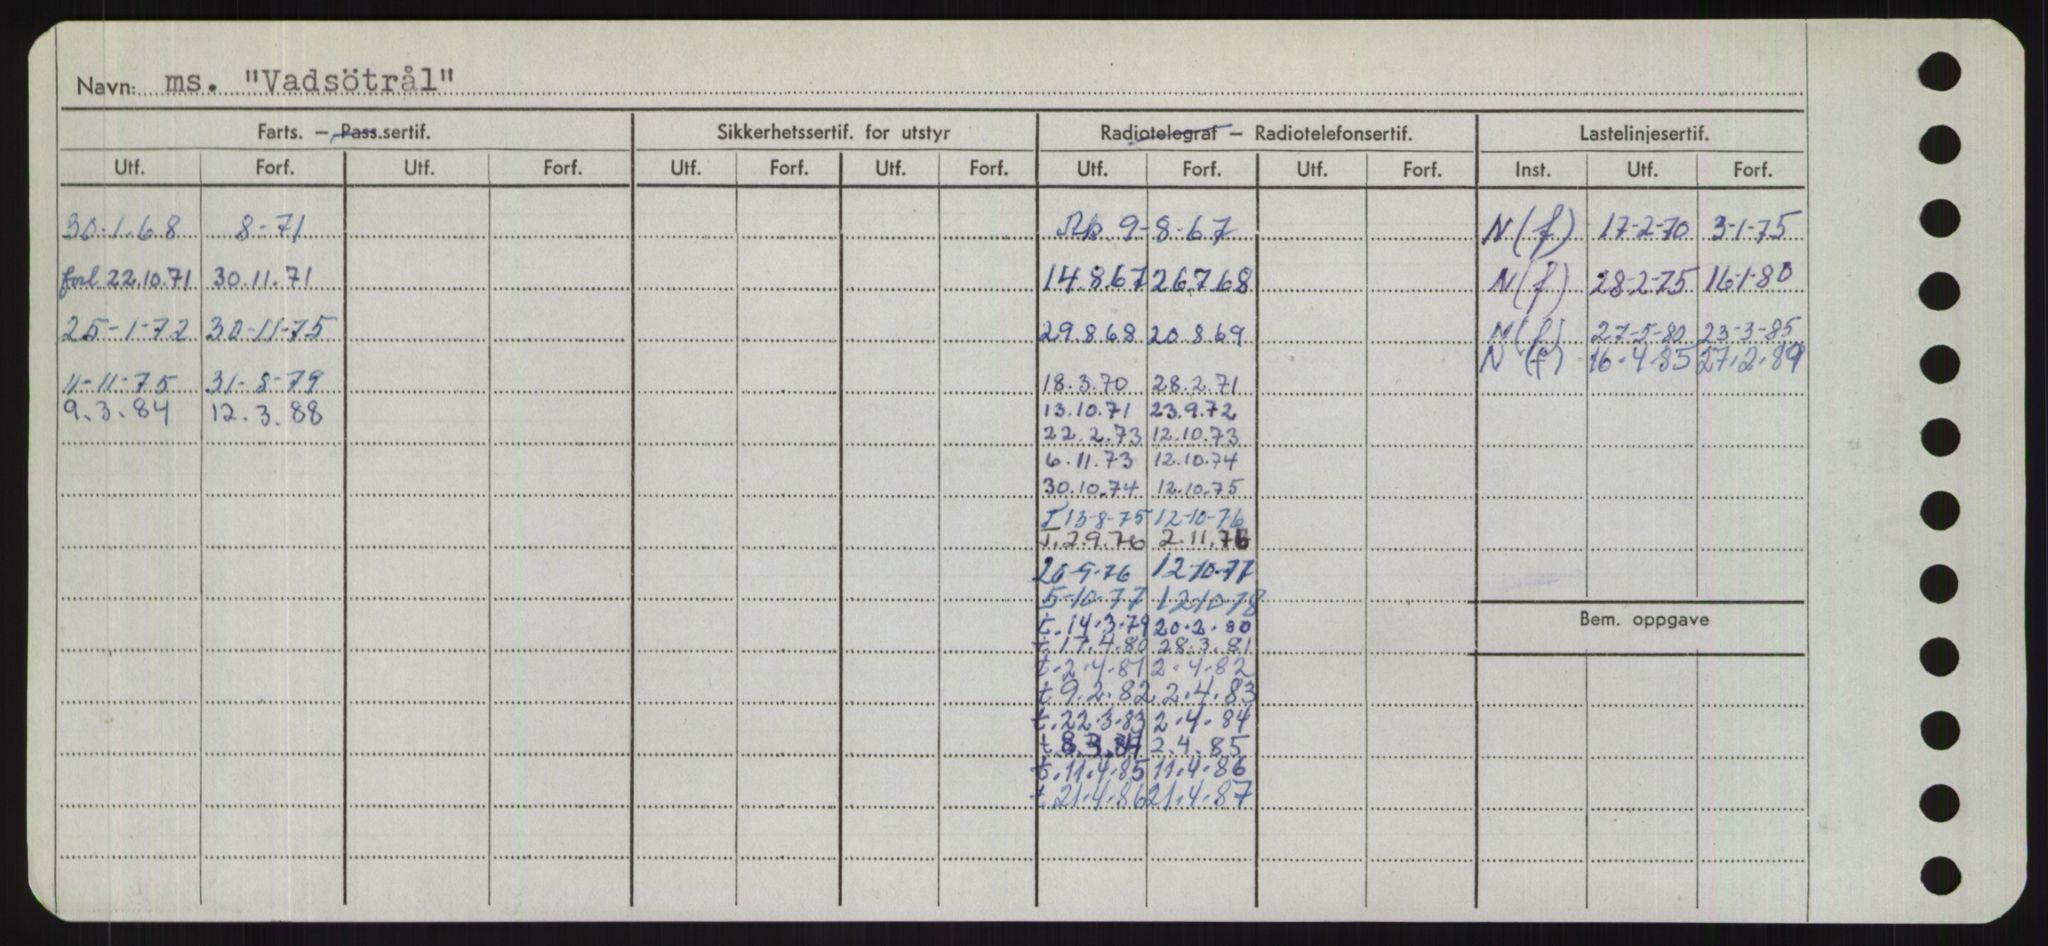 Navn: ms. "Vadsötrål"
Farts. – Pass.sertif. Sikkerhetssertif. for utstyr Radiotelegraf – Radiotelefonsertif. Lastelinjesertif.
Utf. Forf. Utf. Forf. Utf. Forf. Utf. Forf. Utf. Forf. Utf. Forf. Inst. Utf. Forf.
30.1.68 8-71 9-8-67 N(f) 17-2-70 3-1-75
forl 22.10.71 30.11.71 14.8.67 26.7.68 N(f) 28-2-75 16-1-80
25-1-72 30-11-75 29.8.68 20.8.69 N(f) 27-5-80 23-3-85
N(f) 16.4.85 27.2.89
11-11-75 31-8-79 18.3.70 28.2.71
9.3.84 12.3.88 13.10.71 23.9.72
22.2.73 12.10.73
6.11.73 12.10.74
30.10.74 12.10.75
T 13-8-75 12-10-76
T.2.9.76 2.11.76
26-9-76 12-10-77
5-10-77 12-10-78
t.14.3.79 20.2.80
t.17.4.80 28.3.81
t.2.4.81 2.4.82
t.9.2.82 2.4.83
t.22.3.83 2.4.84
t.8.3.84 2.4.85
t.11.4.85 11.4.86
t.21.4.86 21.4.87
Bem. oppgave